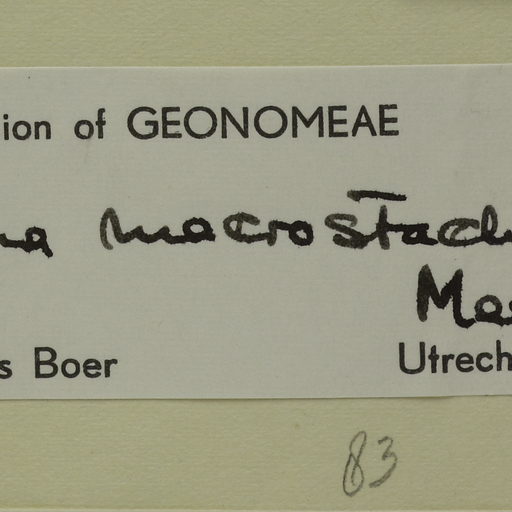 ion of GEONOMEAE
na macrostach
Ma
s Boer
Utrech
83